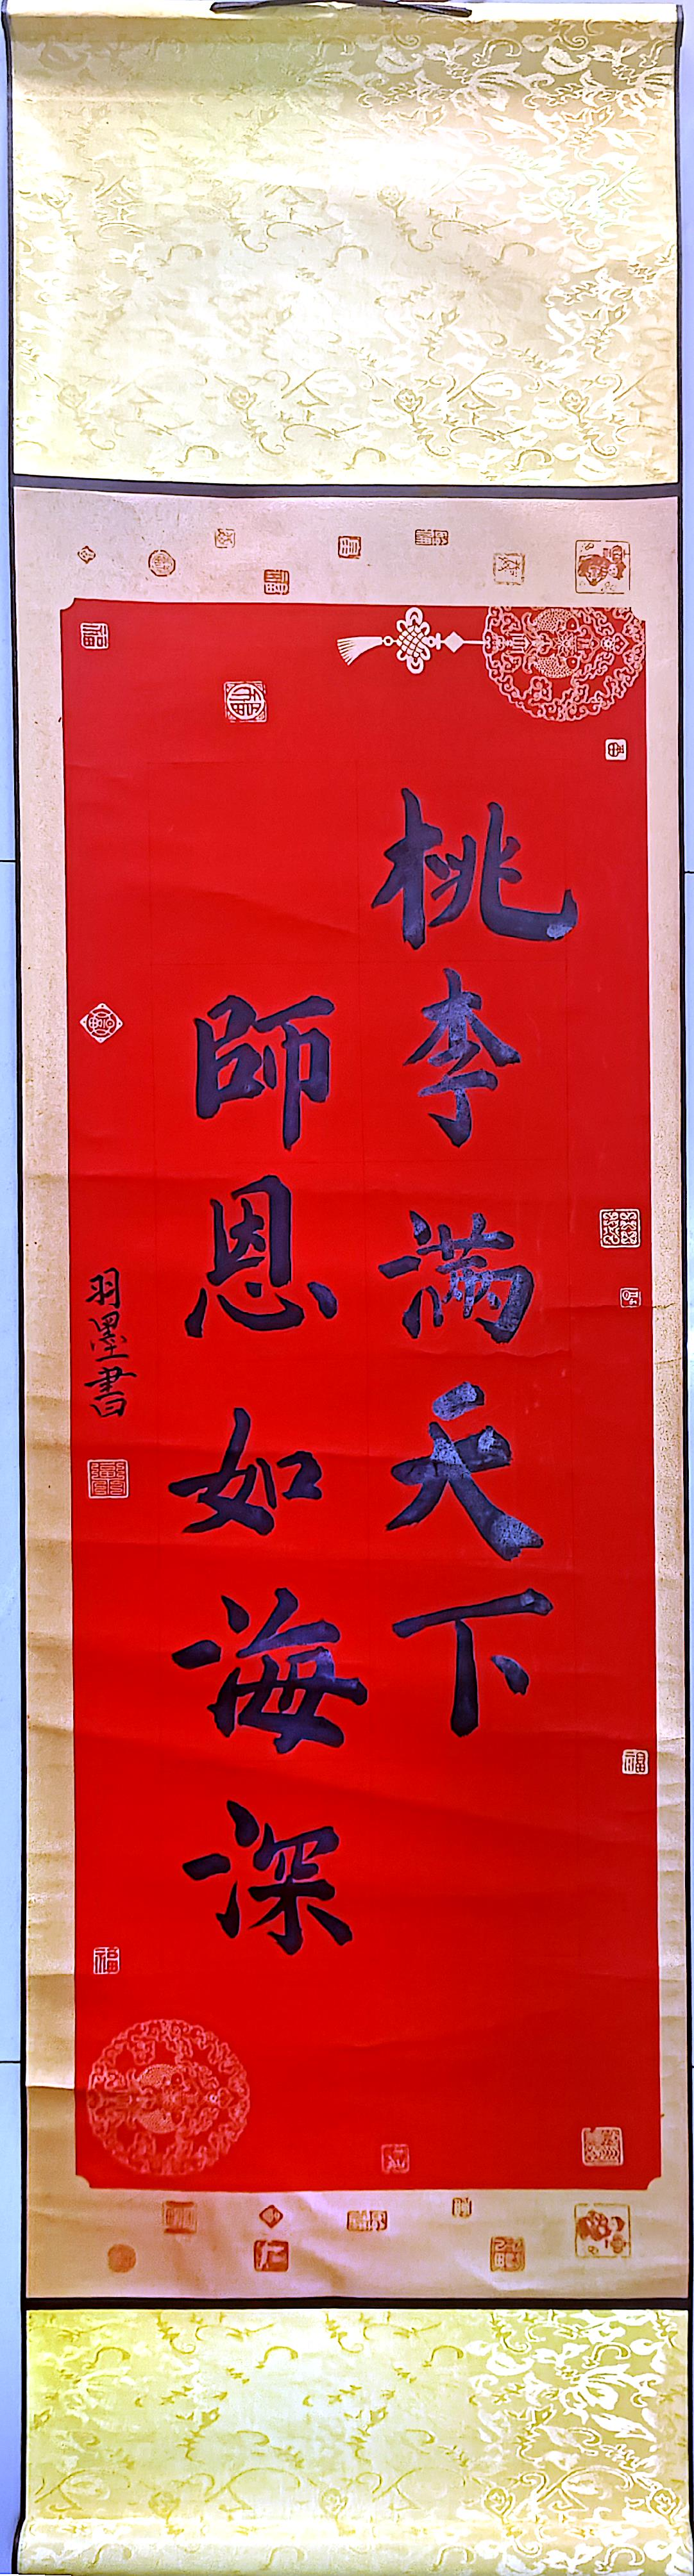 桃李满天下
師恩如海深
羽墨書
福
福